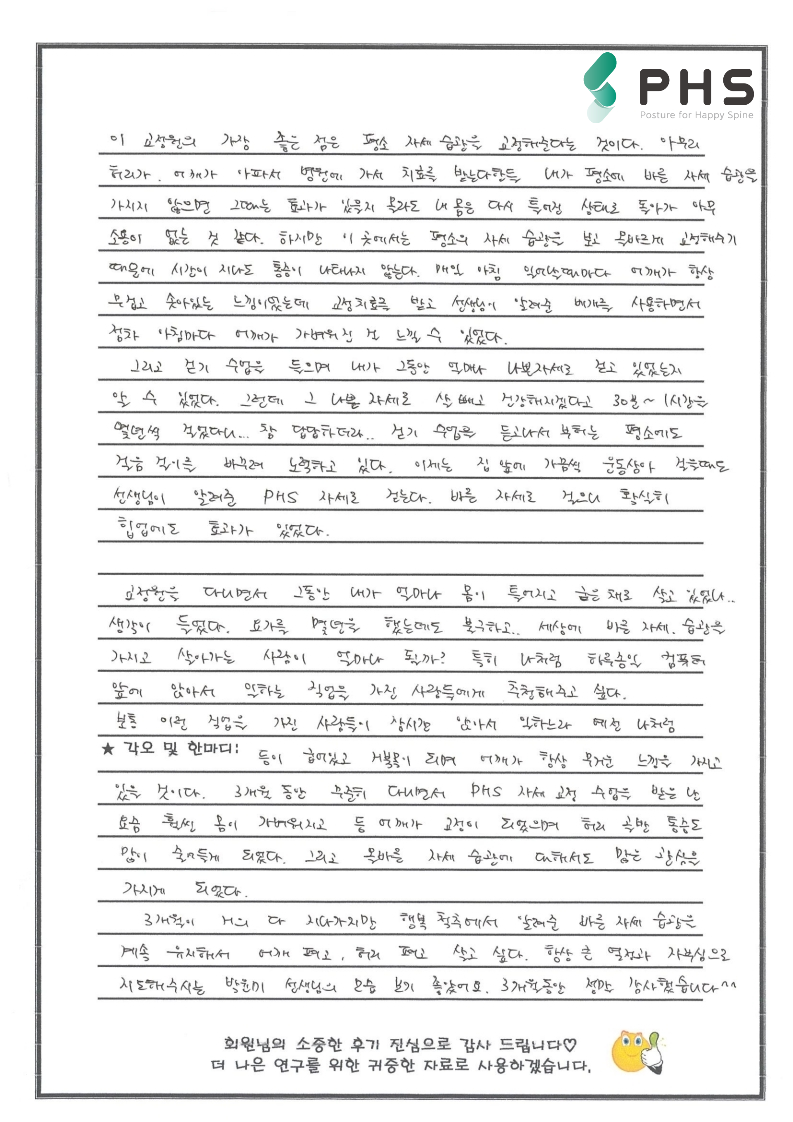 PHS
Posture for Happy Spine
이 교정원의 가장 좋은 점은 평소 자세 습관을 교정해준다는 것이다. 아무리
허리가, 어깨가 아파서 병원에 가서 치료를 받는다한들 내가 평소에 바른 자세 습관을
가지지 않으면 그때는 효과가 있을지 몰라도 내 몸은 다시 틀어진 상태로 돌아가 아무
소용이 없는 것 같다. 하지만 이 곳에서는 평소의 자세 습관을 보고 올바르게 교정해주기
때문에 시간이 지나도 통증이 나타나지 않는다. 매일 아침 일어날때마다 어깨가 항상
무겁고 솟아있는 느낌이었는데 교정치료를 받고 선생님이 알려준 베개를 사용하면서
점차 아침마다 어깨가 가벼워진 걸 느낄 수 있었다.
그리고 걷기 수업을 들으며 내가 그동안 얼마나 나쁜자세로 걷고 있었는지
알 수 있었다. 그런데 그 나쁜 자세로 살 빼고 건강해지겠다고 30분~1시간을
몇년씩 걸었다니... 참 답답하더라.. 걷기 수업을 듣고나서 부터는 평소에도
걸음 걸이를 바꾸려 노력하고 있다. 이제는 집 앞에 가끔씩 운동삼아 걸을때도
선생님이 알려준 PHS 자세로 걷는다. 바른 자세로 걸으니 확실히
힙업에도 효과가 있었다.
교정원을 다니면서 그동안 내가 얼마나 몸이 틀어지고 굽은 채로 살고 있었나..
생각이 들었다. 요가를 몇년을 했는데도 불구하고.. 세상에 바른 자세. 습관을
가지고 살아가는 사람이 얼마나 될까? 특히 나처럼 하루종일 컴퓨터
앞에 앉아서 일하는 직업을 가진 사람들에게 추천해주고 싶다.
보통 이런 직업을 가진 사람들이 장시간 앉아서 일하느라 예전 나처럼
★ 각오 및 한마디: 등이 굽어있고 거북목이 되며 어깨가 항상 무거운 느낌을 가지고
있을 것이다. 3개월 동안 꾸준히 다니면서 PHS 자세 교정 수업을 받은 난
요즘 훨씬 몸이 가벼워지고 등 어깨가 교정이 되었으며 허리 골반 통증도
많이 줄어들게 되었다. 그리고 올바른 자세 습관에 대해서도 많은 관심을
가지게 되었다.
3개월이 거의 다 지나가지만 행복 척추에서 알려준 바른 자세 습관을
계속 유지해서 어깨 펴고, 허리 펴고 살고 싶다. 항상 큰 열정과 자부심으로
지도해주시는 박윤미 선생님의 모습 보기 좋았어요. 3개월동안 정말 감사했습니다^^
회원님의 소중한 후기 진심으로 감사 드립니다♡
더 나은 연구를 위한 귀중한 자료로 사용하겠습니다.